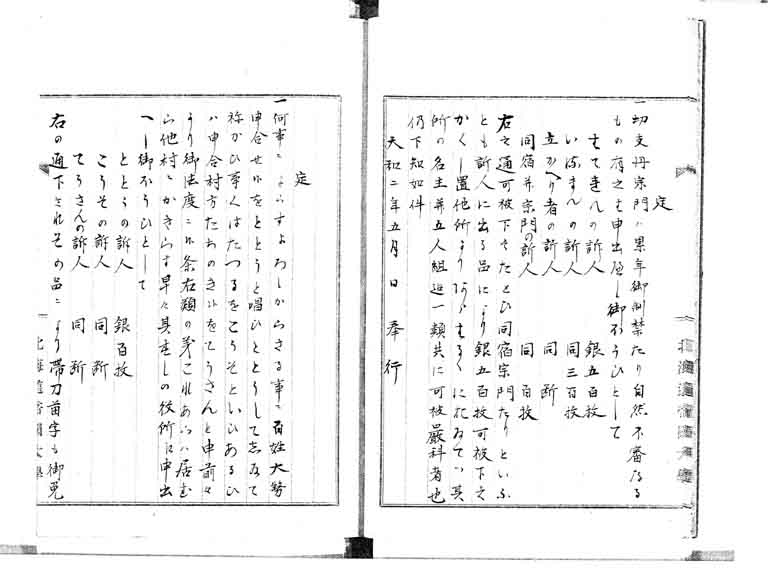 定
一切支丹宗門ハ累年御制禁たり自然不審なる
もの有之は申出へし御ほうひとして
はてれんの訴人 銀五百枚
いるまんの訴人 同三百枚
立かへり者の訴人 同断
同宿并宗門の訴人 同百枚
右之通可被下さたとひ同宿宗門たりといふ
とも訴人に出る品により銀五百枚可被下之
かくし置他所よりあらはるゝにおゐてハ其
所の名主并五人組迄一類共に可被厳科者也
仍下知如件
天和二年五月 日 奉行
定
一何事によらすよろしからさる事に百姓大勢
申合せ候をととうと唱ひととうしてしゐて
ねかひ事くはたつるをこうそといひあるひ
ハ申合村方たちのき候をてうさんと申前々
より御法度に候条右類の義これあらハ居む
ら他村にかきらす早々其すしの役所に申出
へし御ほうひとして
ととうの訴人 銀百枚
こうその訴人 同断
てうさんの訴人 同断
右の通下されその品により帯刀苗字も御免